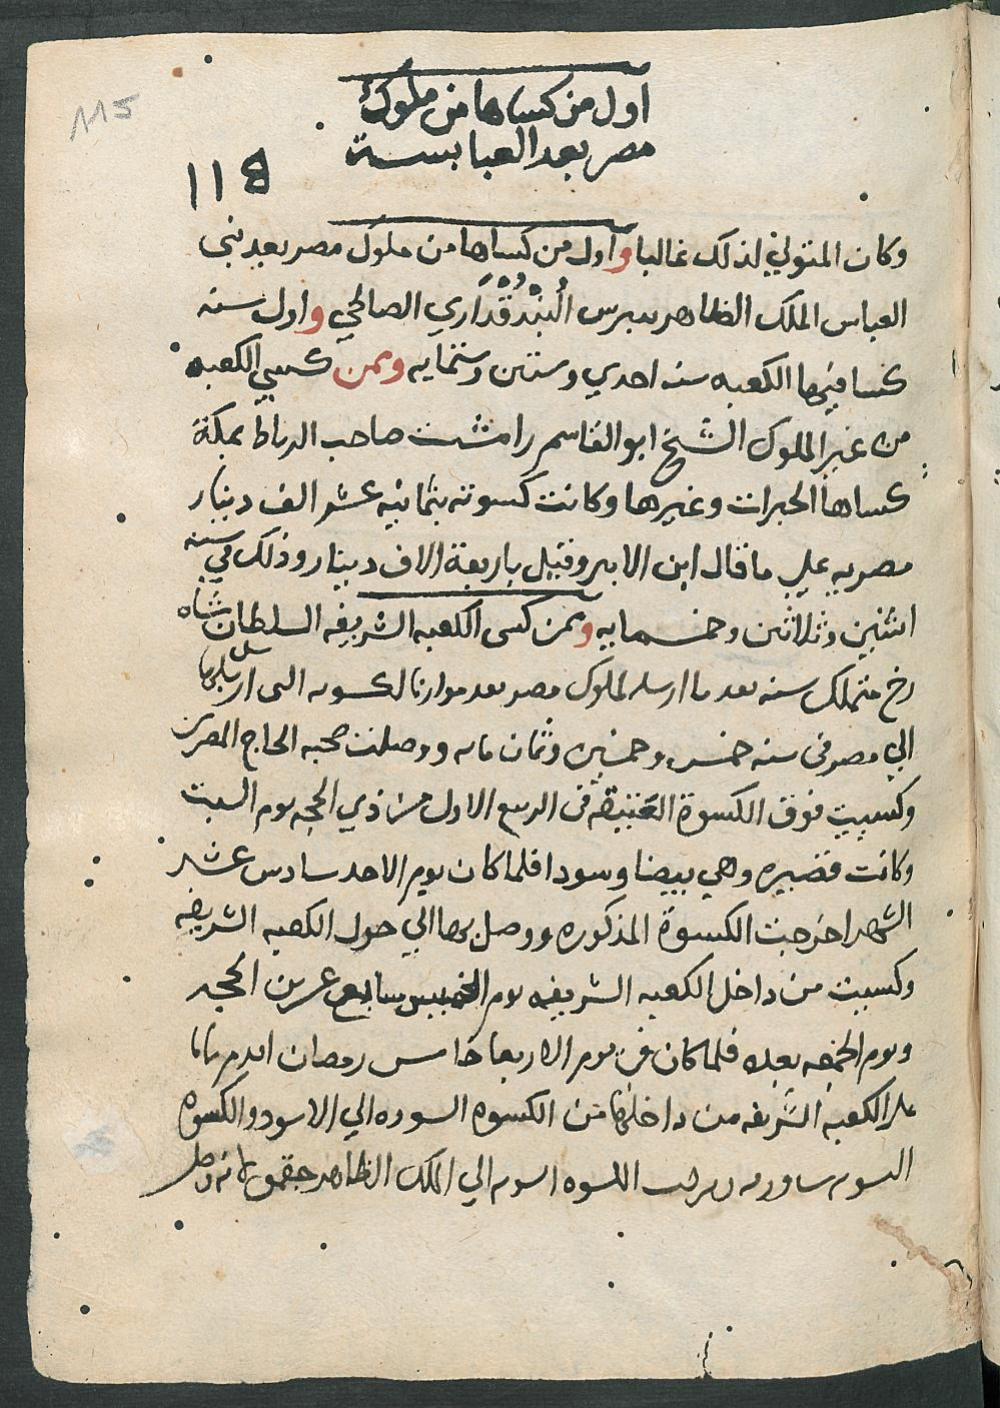 115
اول من كساها من ملوك
مصر بعد العبابسة
118
وكان المتولي لذلك غالبا واول من كساها من ملوك مصر بعد بني
العباس الملك الظاهر بيبرس البندقداري الصالحي واول سنه
كسا فيها الكعبه سنه احدي وستين وستمايه وممن كسي الكعبه
من غير الملوك الشيخ ابو القاسم رامشت صاحب الرباط بمكة
كساها الحبرات وغيرها وكانت كسوته بثمانيه عشر الف دينار
مصريه علي ما قال ابن الاثير وقيل باربعة الاف دينار وذلك في سنه
اثنين وثلاثين وخمسمايه وممن كسى الكعبه الشريفه السلطان شاه
رخ ملك بعد ما ارسله لملوك مصر الكسوه التى ارسلها
الي مصر في سنه خمس وخمسين وثمان مايه ووصلت صحبه الحاج المصري
وكسيت فوق الكسوة العتيقه في الاول من ذي الحجه يوم السبت
وكانت وهي بيضا وسودا فلما كان يوم الاحد سادس عشر
الشهر اخرجت الكسوة المذكوره ووصل بها الي حول الكعبه الشريفه
وكسيت من داخل الكعبه الشريفه يوم الخميس سابع الحجه
ويوم الجمعه بعده فلما كان في يوم الاربعا خامس رمضان
علي الكعبه الشريفه من داخلها من الكسوه السوده الي الاسود والكسوه
الي الملك الظاهر جقمق لانه وصل